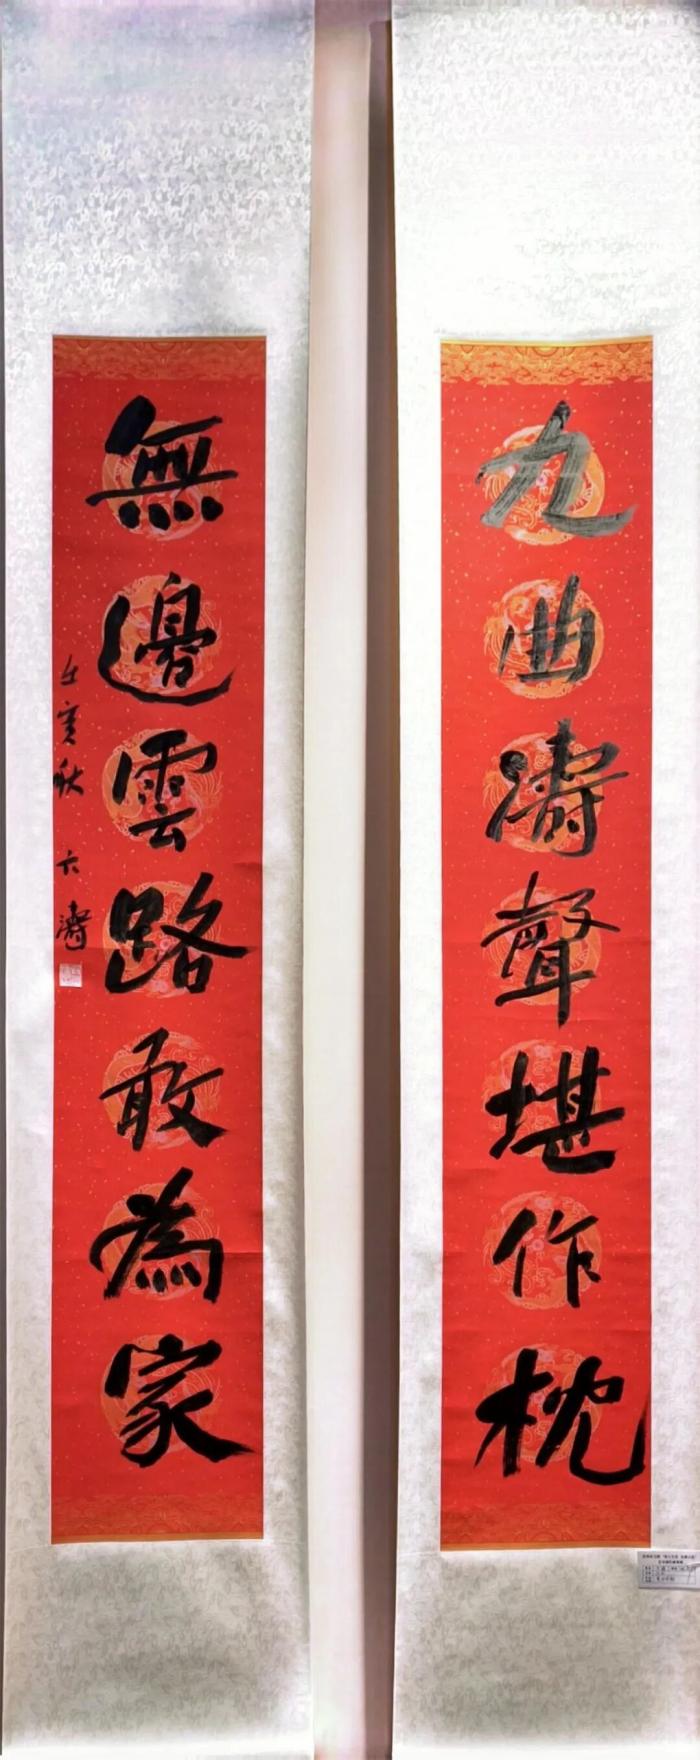 九曲濤聲堪作枕
無邊雲路敢為家
壬寅秋 六濤